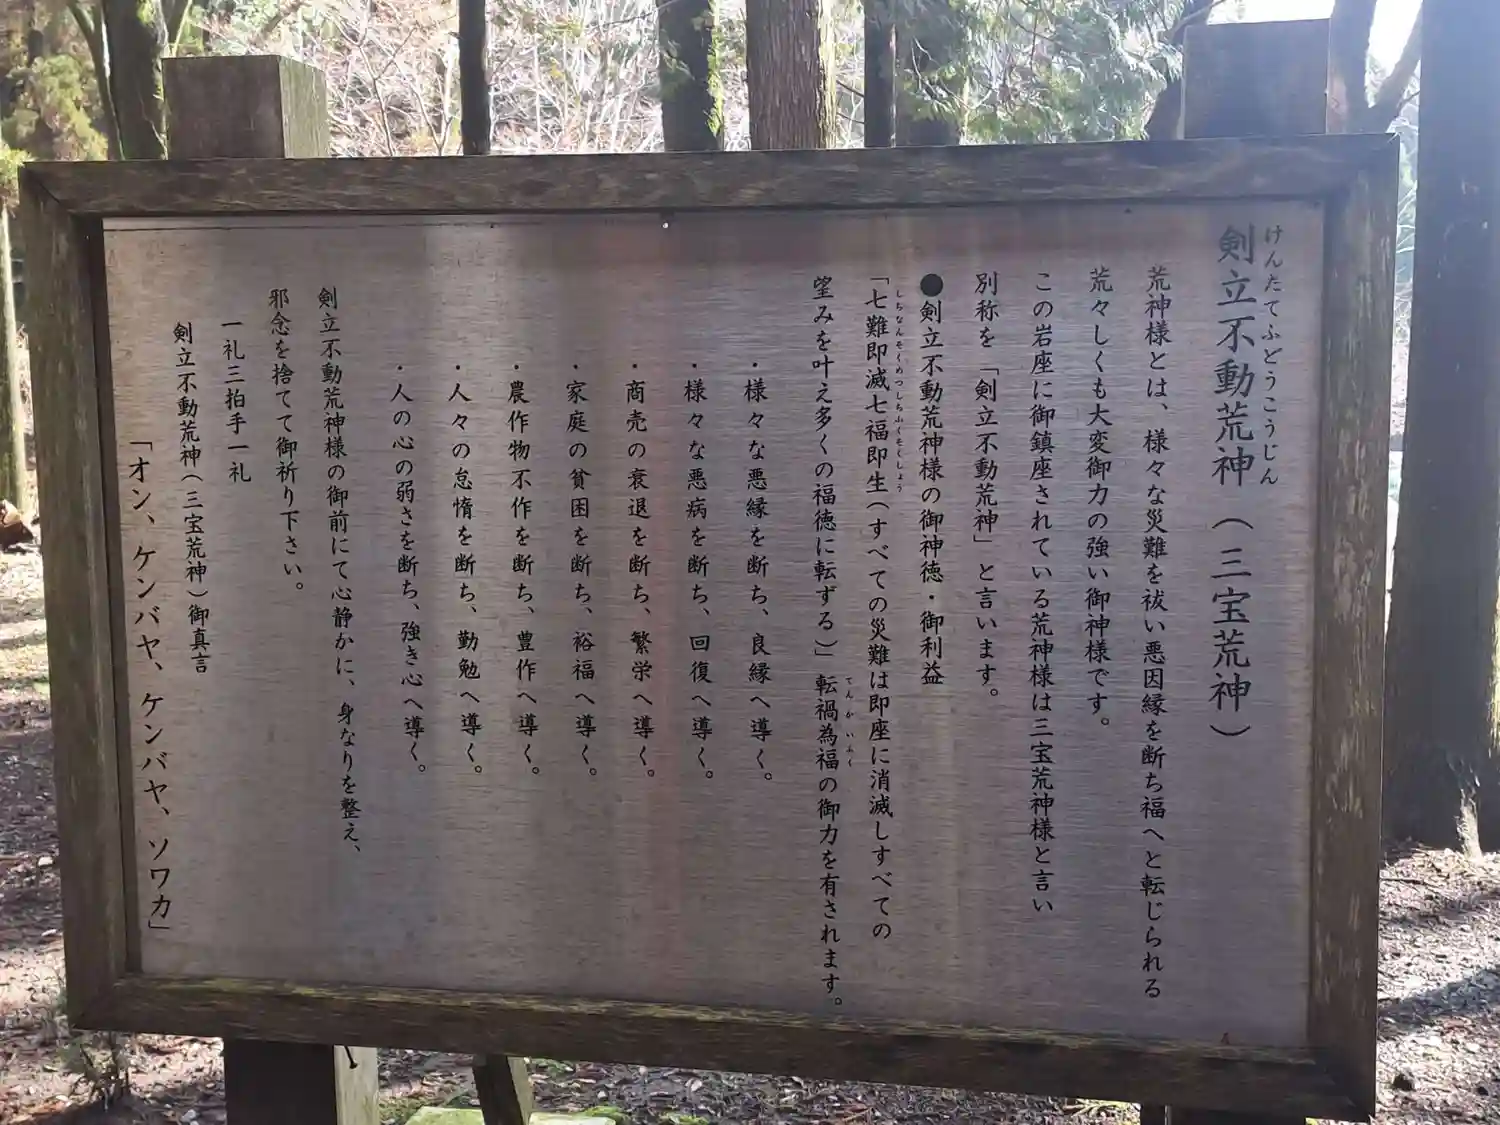 剣立不動荒神（三宝荒神）
けんたてふどうこうじん
荒神様とは、様々な災難を祓い悪因縁を断ち福へと転じられる
荒々しくも大変御力の強い御神様です。
この岩座に御鎮座されている荒神様は三宝荒神様と言い
別称を「剣立不動荒神」と言います。
●剣立不動荒神様の御神徳・御利益
しちなんそくめつしちふくそくしょう
「七難即滅七福即生（すべての災難は即座に消滅しすべての
望みを叶え多くの福徳に転ずる）」転禍為福の御力を有されます。
てんかいふく
・様々な悪縁を断ち、良縁へ導く。
・様々な悪病を断ち、回復へ導く。
・商売の衰退を断ち、繁栄へ導く。
・家庭の貧困を断ち、裕福へ導く。
・農作物不作を断ち、豊作へ導く。
・人々の怠惰を断ち、勤勉へ導く。
・人の心の弱さを断ち、強き心へ導く。
剣立不動荒神様の御前にて心静かに、身なりを整え、
邪念を捨てて御祈り下さい。
一礼三拍手一礼
剣立不動荒神（三宝荒神）御真言
「オン、ケンバヤ、ケンバヤ、ソワカ」